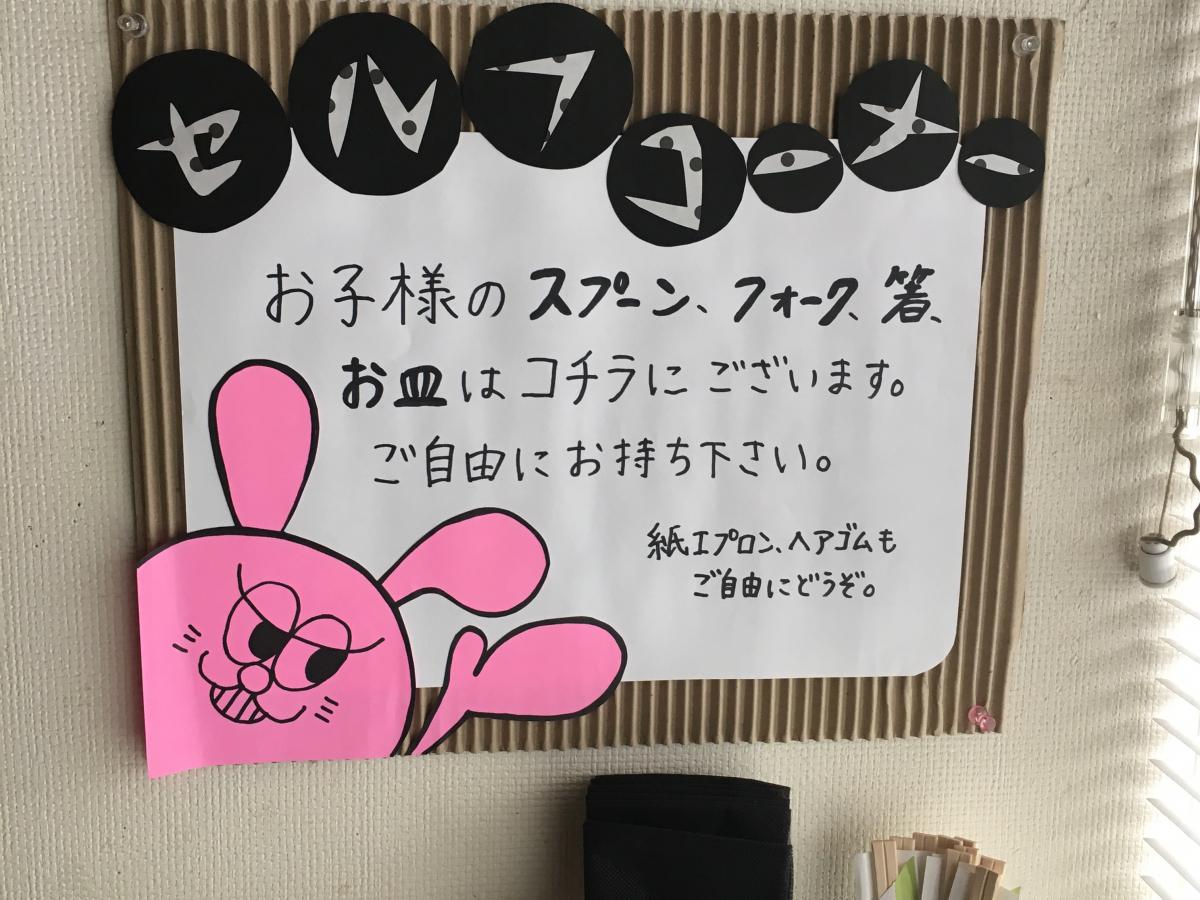 セルフコーナー
お子様のスプーン、フォーク、箸、
お皿はコチラにございます。
ご自由にお持ち下さい。
紙エプロン、ヘアゴムも
ご自由にどうぞ。